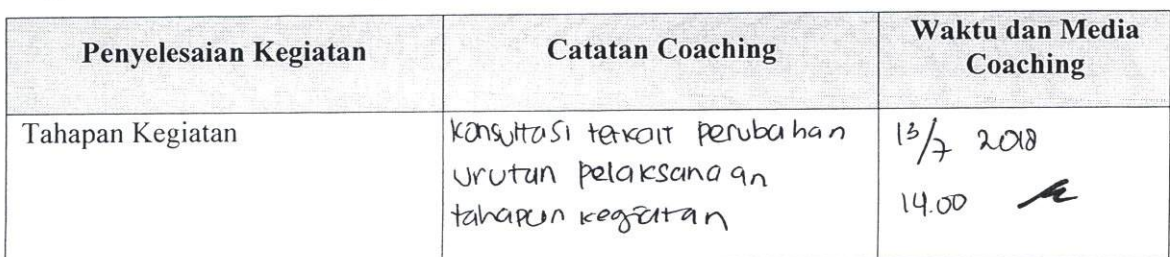 Penyelesaian Kegiatan
Catatan Coaching
Waktu dan Media
Coaching
Tahapan Kegiatan
Konsultasi terkait perubahan
urutan pelaksanaan
tahapan kegiatan
13/7 2018
14.00